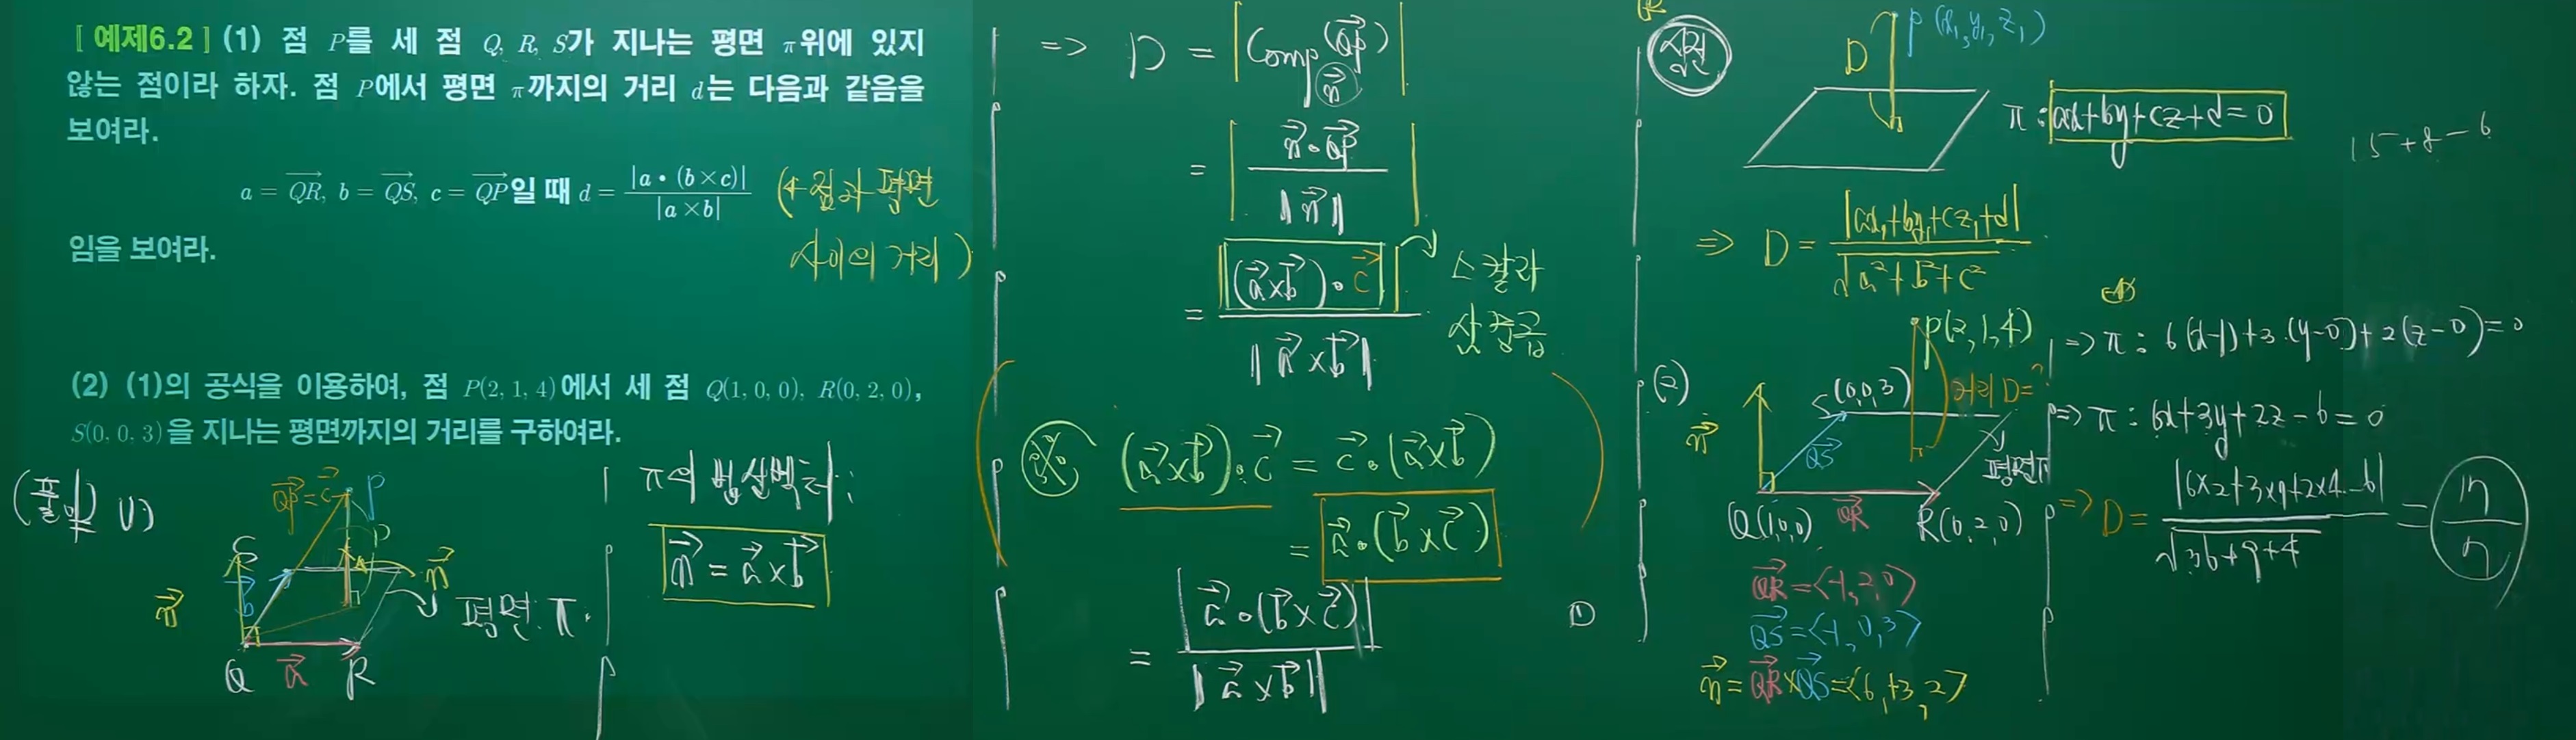 [ 예제6.2 ] (1) 점 P를 세 점 Q, R, S가 지나는 평면 π위에 있지
않는 점이라 하자. 점 P에서 평면 π까지의 거리 d는 다음과 같음을
보여라.
a = QR→, b = QS→, c = QP→일 때 d = |a • (b×c)| / |a×b|
(※ 점과 평면
사이의 거리)
임을 보여라.
(2) (1)의 공식을 이용하여, 점 P(2, 1, 4)에서 세 점 Q(1, 0, 0), R(0, 2, 0),
S(0, 0, 3)을 지나는 평면까지의 거리를 구하여라.
(풀이) (1)
QP→ = c→
P
D
S
b→
n→
n→
평면 π.
Q
a→
R
π의 법선벡터:
n→ = a→×b→
=> D = |Comp n→ (QP→)|
= | n→•QP→ / ‖n→‖ |
= |(a→×b→)•c→| / ‖a→×b→‖
스칼라
삼중곱
※ (a→×b→)•c→ = c→•(a→×b→)
= a→•(b→×c→)
= |a→•(b→×c→)| / ‖a→×b→‖
D
P(x₁, y₁, z₁)
π: ax+by+cz+d=0
15+8-6
=> D = |ax₁+by₁+cz₁+d| / √a²+b²+c²
(2)
P(2,1,4)
S(0,0,3)
거리 D=?
n→
QS→
평면π
Q(1,0,0)
QR→
R(0,2,0)
QR→ = <-1,2,0>
QS→ = <-1,0,3>
n→ = QR→×QS→ = <6,+3,2>
=> π: 6(x-1)+3·(y-0)+2(z-0)=0
=> π: 6x+3y+2z-6=0
=> D = |6×2+3×1+2×4-6| / √36+9+4 = 17/7